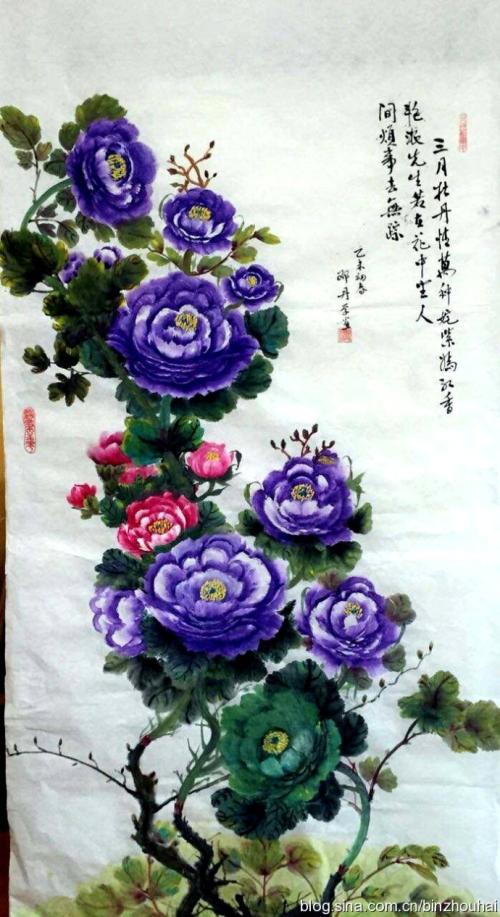 三月牡丹情萬种姹紫嫣红香
艳浓先生若在花中坐人
间烦事去無踪
乙未初春
邵丹
blog.sina.com.cn/binzhouhai